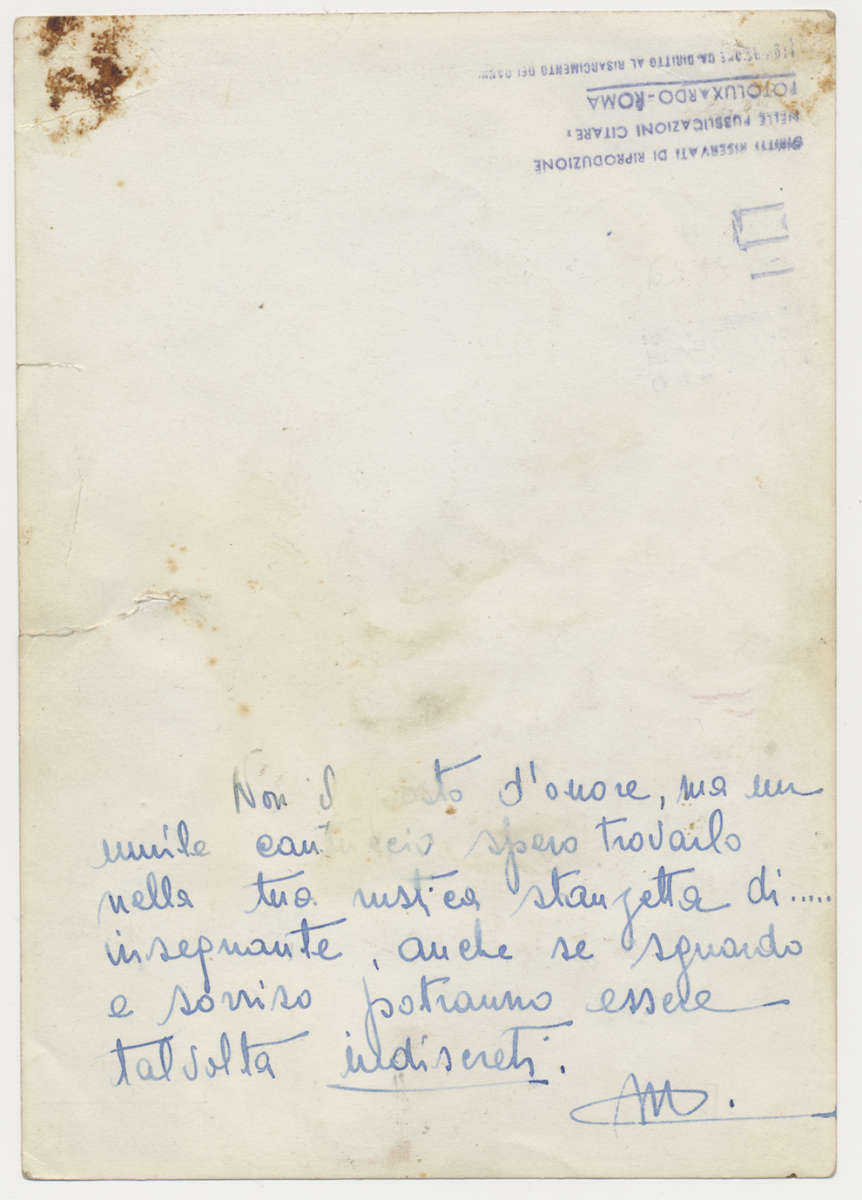 DIRITTI RISERVATI DI RIPRODUZIONE
NELLE PUBBLICAZIONI CITARE:
FOTOLUXARDO-ROMA
DA DIRITTO AL RISARCIMENTO DEI DANNI
Non il posto d'onore, ma un
umile cantuccio spero trovarlo
nella tua rustica stanzetta di.....
insegnante, anche se sguardo
e sorriso potranno essere
talvolta indiscreti.